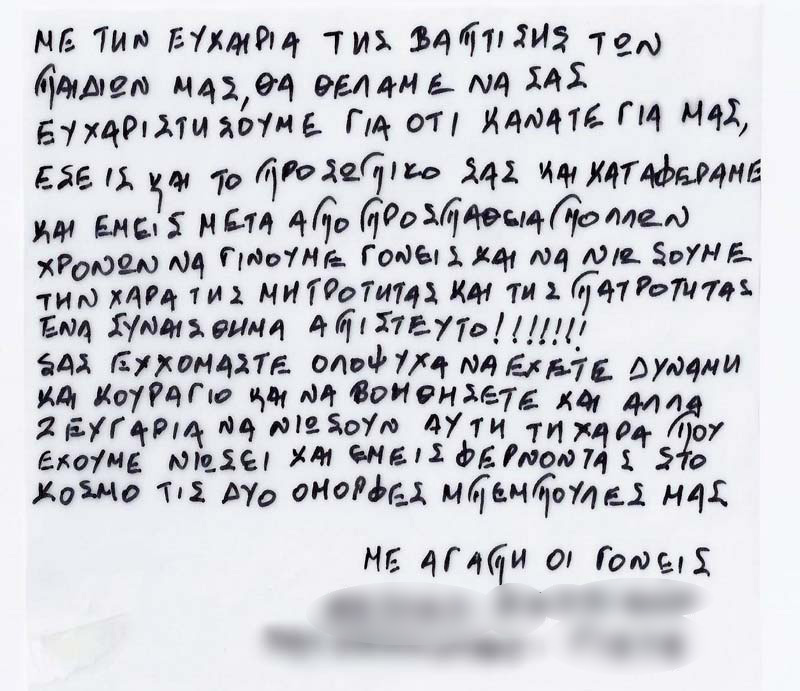 ΜΕ ΤΗΝ ΕΥΧΑΙΡΙΑ ΤΗΣ ΒΑΠΤΙΣΗΣ ΤΩΝ
ΠΑΙΔΙΩΝ ΜΑΣ, ΘΑ ΘΕΛΑΜΕ ΝΑ ΣΑΣ
ΕΥΧΑΡΙΣΤΗΣΟΥΜΕ ΓΙΑ ΟΤΙ ΚΑΝΑΤΕ ΓΙΑ ΜΑΣ,
ΕΣΕΙΣ ΚΑΙ ΤΟ ΠΡΟΣΩΠΙΚΟ ΣΑΣ ΚΑΙ ΚΑΤΑΦΕΡΑΜΕ
ΚΑΙ ΕΜΕΙΣ ΜΕΤΑ ΑΠΟ ΠΡΟΣΠΑΘΕΙΑ ΠΟΛΛΩΝ
ΧΡΟΝΩΝ ΝΑ ΓΙΝΟΥΜΕ ΓΟΝΕΙΣ ΚΑΙ ΝΑ ΝΙΩΣΟΥΜΕ
ΤΗΝ ΧΑΡΑ ΤΗΣ ΜΗΤΡΟΤΗΤΑΣ ΚΑΙ ΤΗΣ ΠΑΤΡΟΤΗΤΑΣ
ΕΝΑ ΣΥΝΑΙΣΘΗΜΑ ΑΠΙΣΤΕΥΤΟ!!!!!!!
ΣΑΣ ΕΥΧΟΜΑΣΤΕ ΟΛΟΨΥΧΑ ΝΑ ΕΧΕΤΕ ΔΥΝΑΜΗ
ΚΑΙ ΚΟΥΡΑΓΙΟ ΚΑΙ ΝΑ ΒΟΗΘΗΣΕΤΕ ΚΑΙ ΑΛΛΑ
ΖΕΥΓΑΡΙΑ ΝΑ ΝΙΩΣΟΥΝ ΑΥΤΗ ΤΗ ΧΑΡΑ ΠΟΥ
ΕΧΟΥΜΕ ΝΙΩΣΕΙ ΚΑΙ ΕΜΕΙΣ ΦΕΡΝΟΝΤΑΣ ΣΤΟ
ΚΟΣΜΟ ΤΙΣ ΔΥΟ ΟΜΟΡΦΕΣ ΜΠΕΜΠΟΥΛΕΣ ΜΑΣ
ΜΕ ΑΓΑΠΗ ΟΙ ΓΟΝΕΙΣ